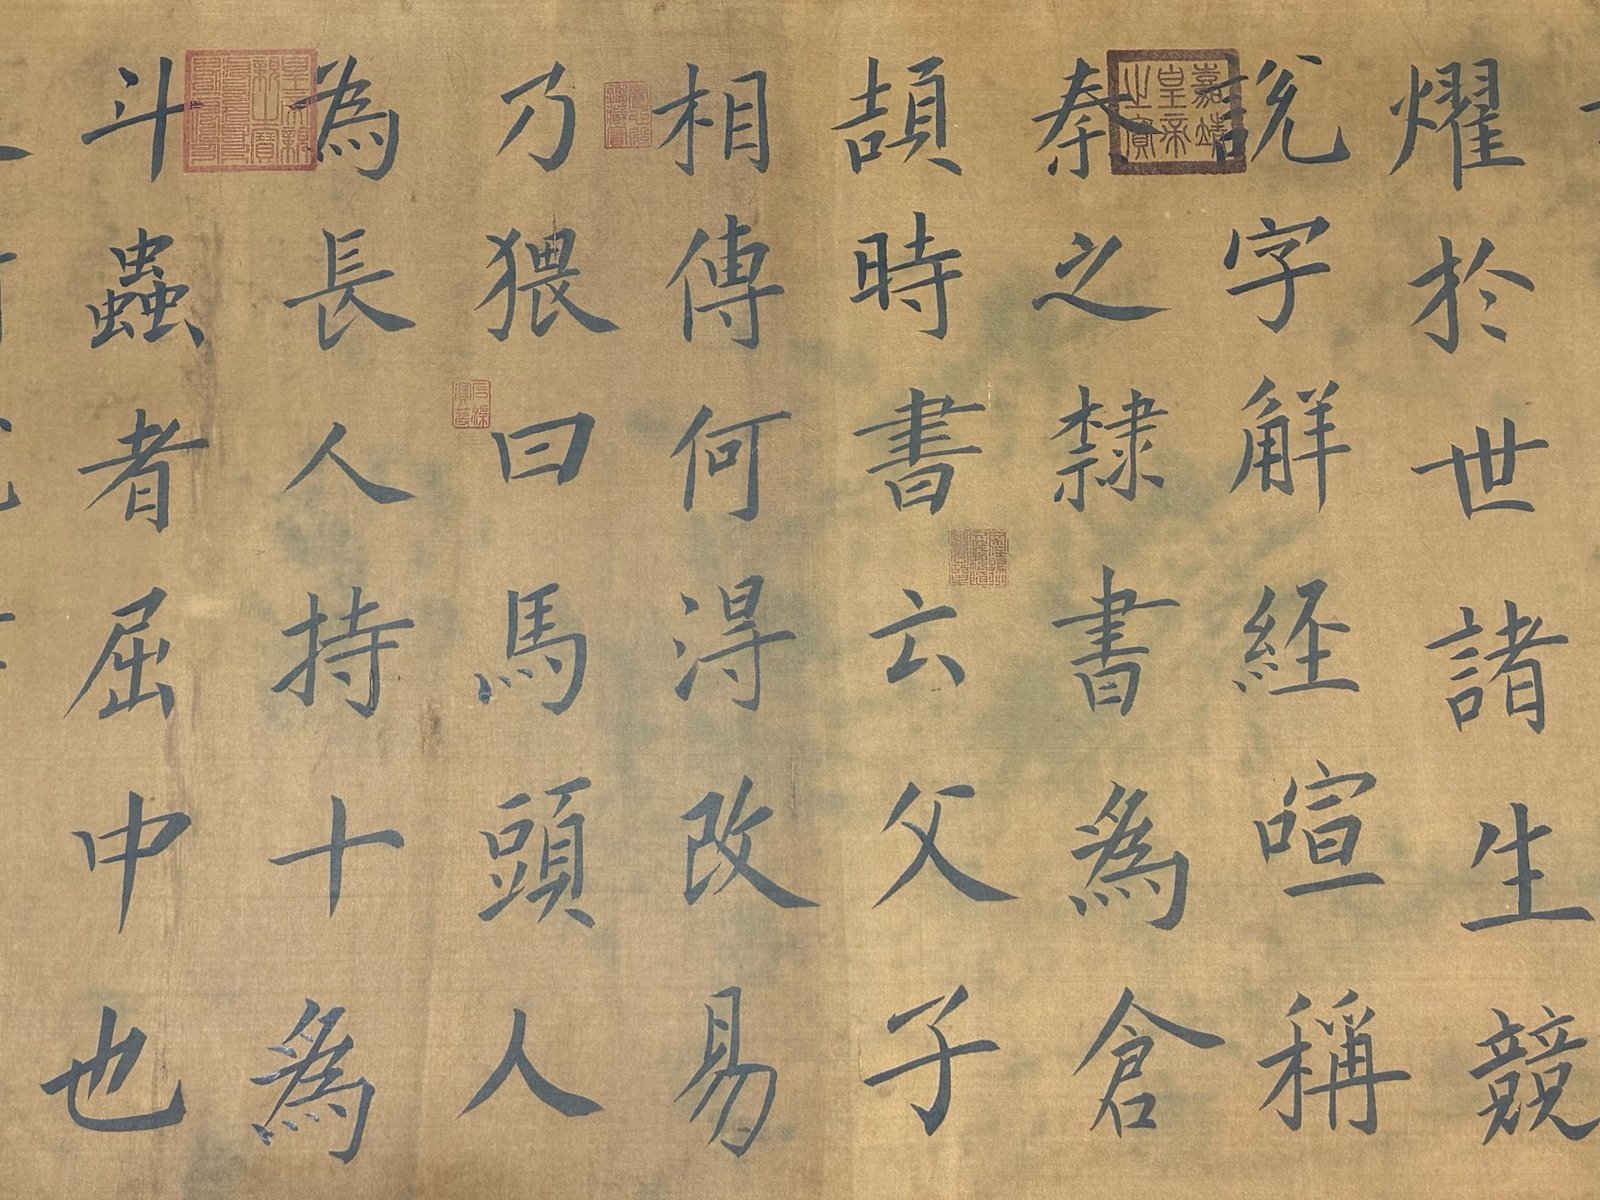 耀於世諸生競
說字解經諠稱
秦之隸書為倉
頡時書云父子
相傳何得改易
乃猥曰馬頭人
為長人持十為
斗蟲者屈中也
嘉靖皇帝之寶